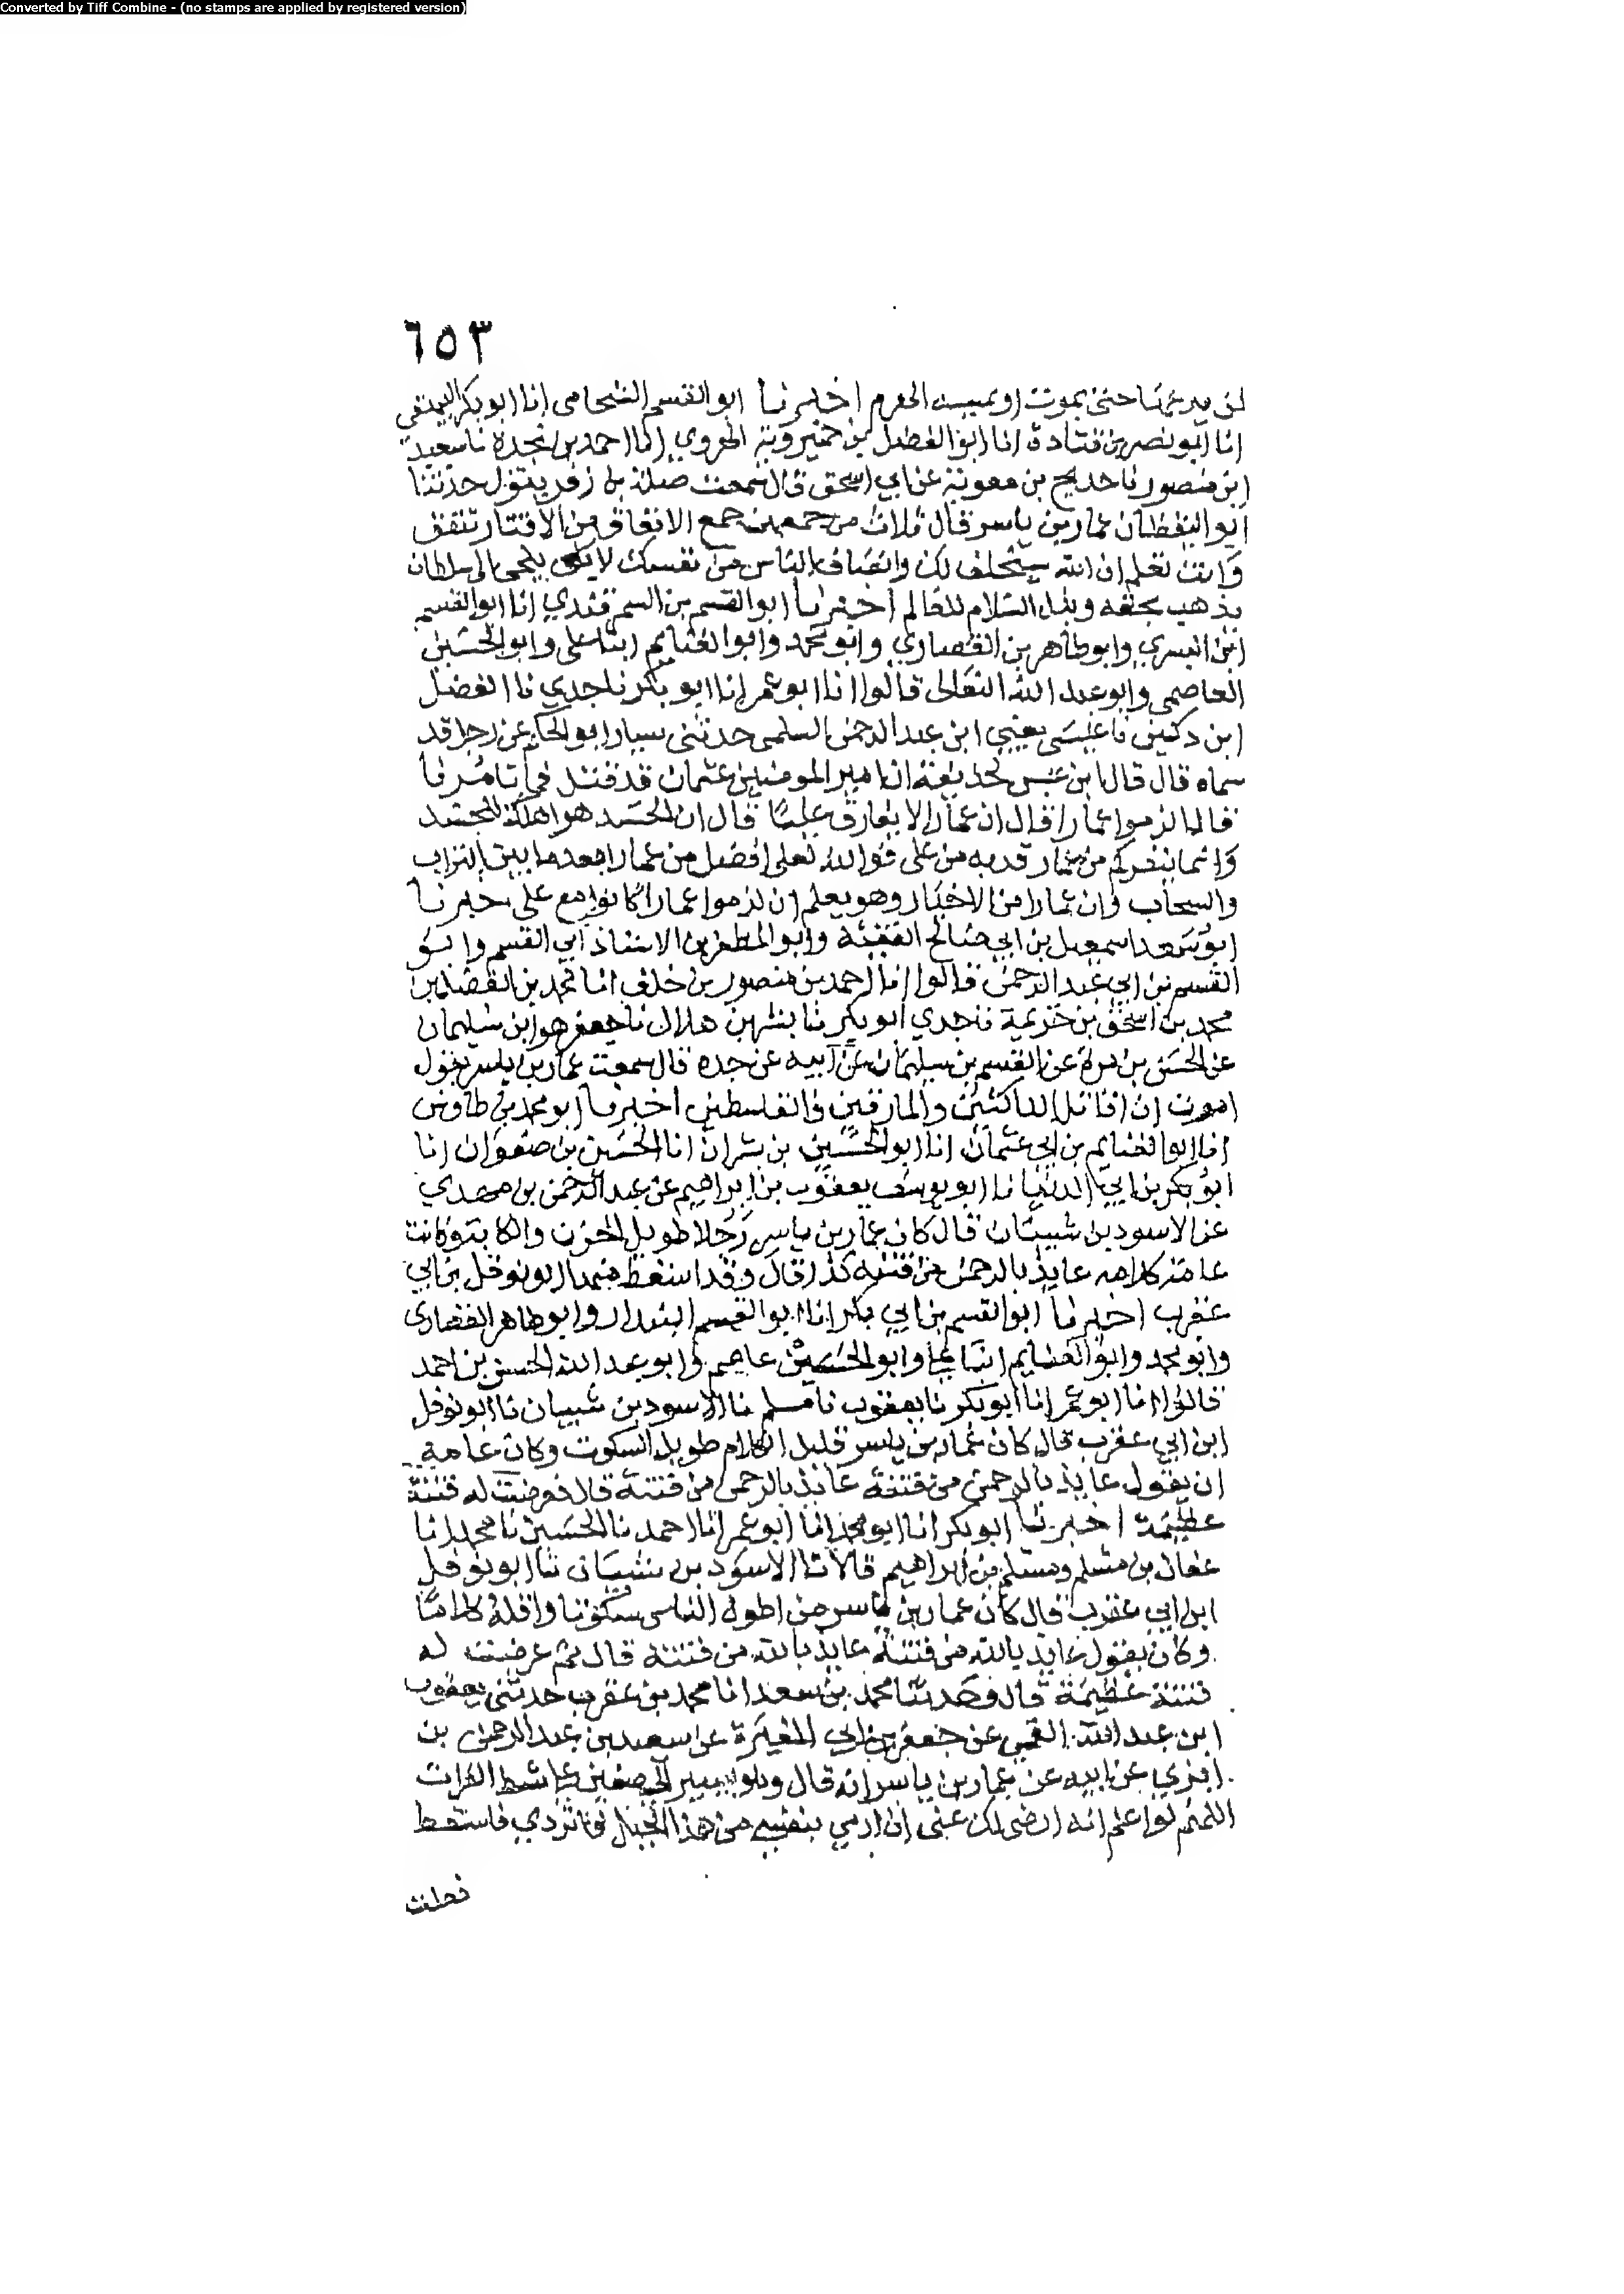 Converted by Tiff Combine - (no stamps are applied by registered version)
٦٥٣
لن يدعهما حتى يموت او يميسه الهرم اخبرنا ابو القسم الشحامي انا ابو بكر البيهقي
انا ابو نصر بن قتادة انا ابو الفضل بن خميرويه الهروي انا احمد بن نجدة نا سعيد
ابن منصور نا حديج بن معوية عن ابي اسحق قال سمعت صلة بن زفر يقول حدثنا
ابو اليقظان عمار بن ياسر قال ثلاث من جمعهن جمع الانفاق من الاقتار تنفق
وانت تعلم ان الله سيخلف لك وانصاف الناس من نفسك لا يلجى الى سلطان
يذهب بحقه وبذل السلام للعالم اخبرنا ابو القسم بن السمرقندي انا ابو القسم
ابن البسري وابو طاهر بن القصاري وابو محمد وابو الغنايم ابنا علي وابو الحسين
العاصمي وابو عبد الله النعالي قالوا انا ابو عمر انا ابو بكر نا جدي نا الفضل
ابن دكين نا عيسى يعني ابن عبد الرحمن السلمي حدثني سيار ابو الحكم عن رجل قد
سماه قال قال بن عبس لحذيفة ان امير المومنين عثمان قد قتل فما تامرنا
قال الزموا عمارا قال ان عمارا لا يفارق عليا قال ان الحسد هو اهلك للجسد
وانما ينفركم من عمار قربه من علي فوالله لعلي افضل من عمار ابعد ما بين التراب
والسحاب وان عمارا من الاخيار وهو يعلم ان لزموا عمارا كانوا مع علي اخبرنا
ابو سعد اسمعيل بن ابي صالح الفقيه وابو المظفر بن الاستاذ ابي القسم وابو
القسم بن ابي عبد الرحمن قالوا انا احمد بن منصور بن خلف انا محمد بن الفضل بن
محمد بن اسحق بن خزيمة نا جدي ابو بكر نا بشر بن هلال نا جعفر هو ابن سليمان
عن الحسن بن مرة عن القسم بن سليمان عن ابيه عن جده قال سمعت عمار بن ياسر يقول
امرت ان اقاتل الناكثين والمارقين والقاسطين اخبرنا ابو محمد بن طاوس
انا ابو الغنايم بن ابي عثمان انا ابو الحسين بن بشران انا الحسين بن صفوان انا
ابو بكر بن ابي الدنيا نا ابو يوسف يعقوب بن ابراهيم عن عبد الرحمن بن مهدي
عن الاسود بن شيبان قال كان عمار بن ياسر رجلا طويل الحزن والكابة وكانت
عامة كلامه عايذ بالرحمن من فتنة كذا قال وقد اسقط منه ابو نوفل بن ابي
عقرب اخبرنا ابو القسم بن ابي بكر انا ابو القسم البندار وابو طاهر القصاري
وابو محمد وابو الغنايم ابنا علي وابو الحسين عاصم وابو عبد الله الحسين بن احمد
قالوا انا ابو عمر انا ابو بكر نا يعقوب نا مسلم نا الاسود بن شيبان نا ابو نوفل
ابن ابي عقرب قال كان عمار بن ياسر قليل الكلام طويل السكوت وكان عامة
ان يقول عايذ بالرحمن من فتنة عايذ بالرحمن من فتنة قال فعرضت له فتنة
عظيمة اخبرنا ابو بكر انا ابو محمد انا ابو عمر انا احمد نا الحسين نا محمد انا
عفان بن مسلم ومسلم بن ابراهيم قالا نا الاسود بن شيبان نا ابو نوفل
ابن ابي عقرب قال كان عمار بن ياسر من اطول الناس سكوتا واقله كلاما
وكان يقول عايذ بالله من فتنة عايذ بالله من فتنة قال ثم عرضت له
فتنة عظيمة قال وحدثنا محمد بن سعد انا محمد بن عقرب حدثني يعقوب
ابن عبد الله القمي عن جعفر بن ابي المغيرة عن سعيد بن عبد الرحمن بن
ابزي عن ابيه عن عمار بن ياسر انه قال وهو يسير الى صفين على شط الفرات
اللهم لو اعلم انه ارضى لك عني ان ارمي بنفسي من هذا الجبل فاتردى فاسقط
فعلت